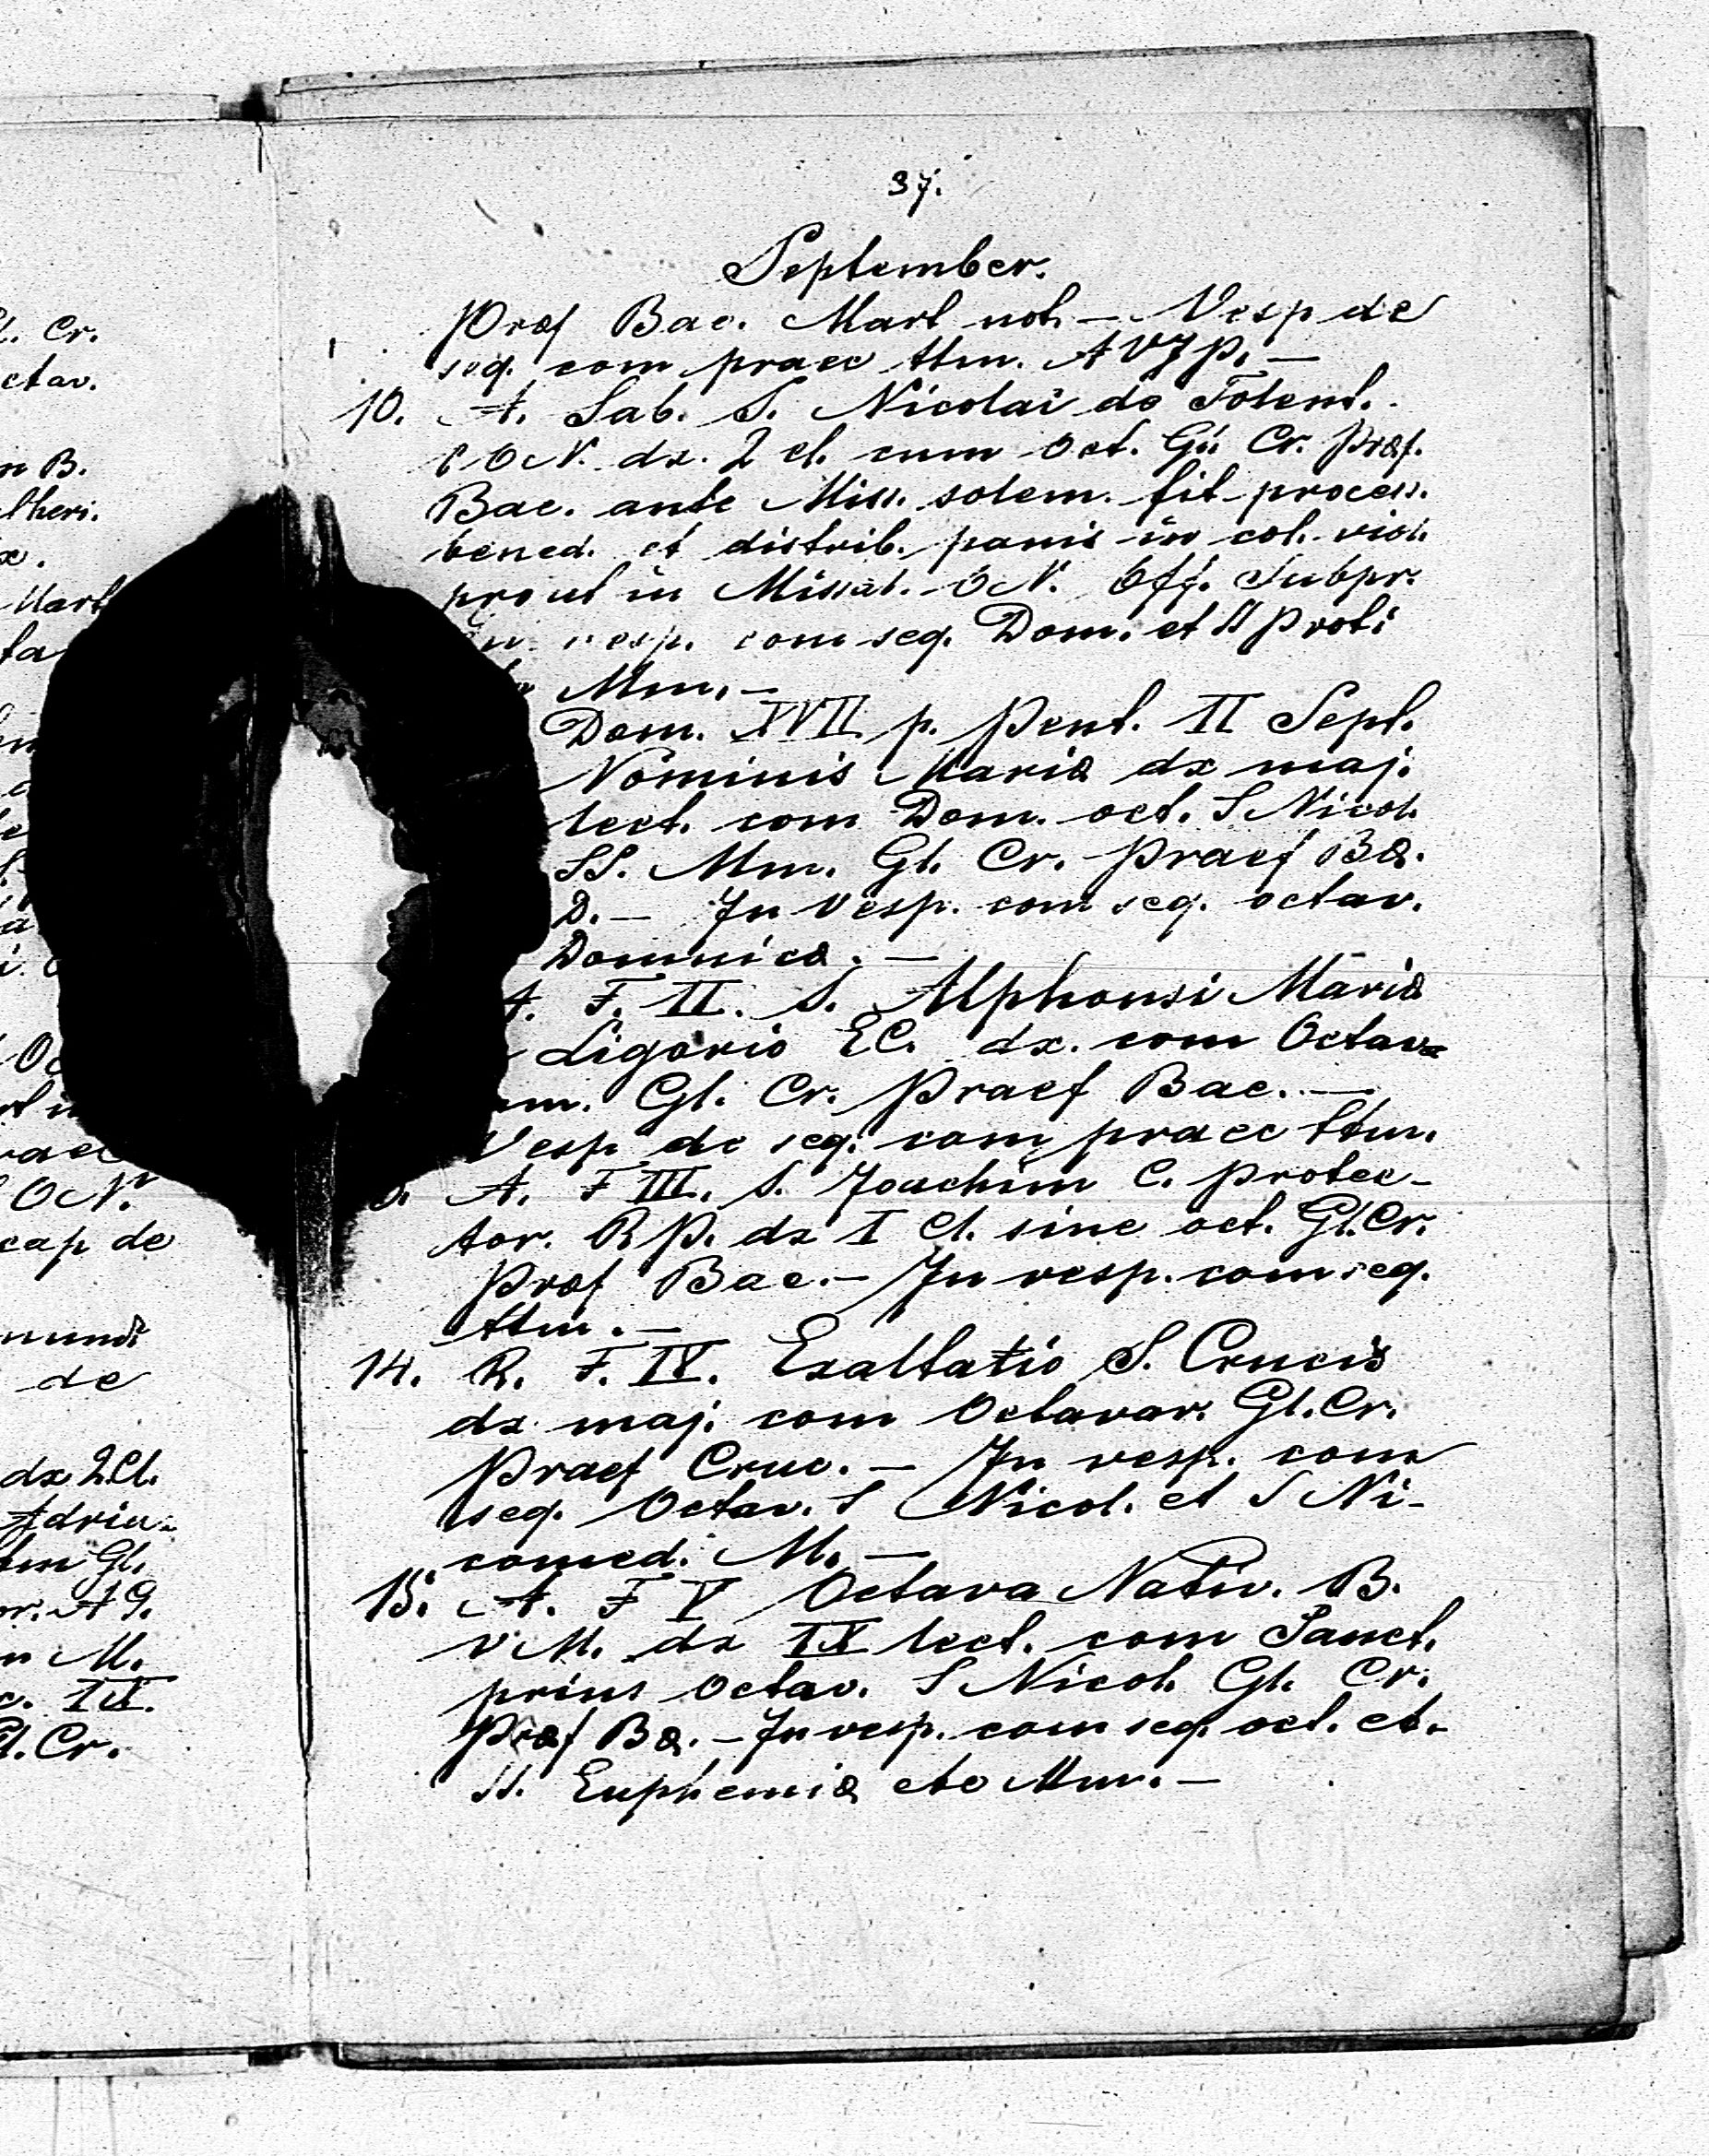 37.
September.
Præf Bae. Mart not. — Vesp de
seq. com praec ttm. A V J P. —
10. A. Sab. S. Nicolai de Tolent.
C O N. dx. 2 cl. cum oct. Gl. Cr. Præf.
Bae. ante Miss. solem. fit process.
bened. et distrib. panis in col. viol.
prout in Missal. O N. Off. Subpr.
In vesp. com seq. Dom. et SS Proti
Mm. —
Dom. XVII p. Pent. II Sept.
Nominis Mariæ dx maj.
lect. com Dom. oct. S Nicol.
SS. Mm. Gl. Cr. Praef Bæ.
D. — In Vesp. com seq. octav.
Dominicæ. —
A. F. II. S. Alphonsi Mariæ
Ligorio EC. dx. com Octava
Gl. Cr. Praef Bae. —
Vesp de seq. com praec ttm.
A. F III. S. Joachim C. Protec-
tor. R P. dx I Cl. sine oct. Gl. Cr.
Præf Bae. — In vesp. com seq.
ttm. —
14. R. F. IV. Exaltatio S. Crucis
dx maj. com Octavar. Gl. Cr.
Praef Cruc. — In vesp. com
seq. Octav. S Nicol. et S Ni-
comed. M. —
15. A. F V Octava Nativ. B.
V M. dx IX lect. com Sanct.
prius Octav. S Nicol. Gl. Cr.
Præf Bæ. — In vesp. com seq. oct. et.
SS. Euphemiæ etc Mm. —
Cr.
ctav.
B.
x.
Mart
O N.
cap de
de
dx 2 Cl.
Gl.
M.
Cr.